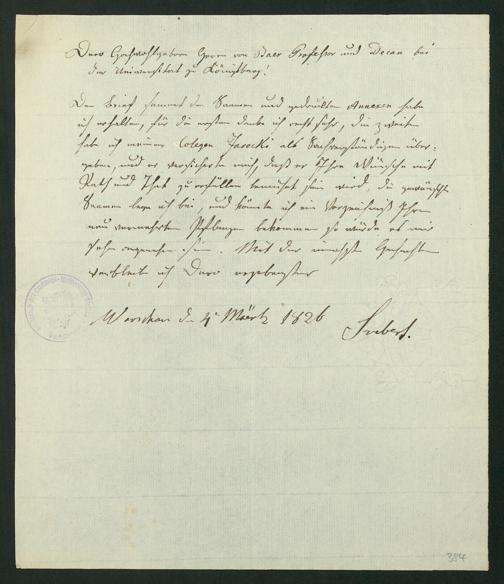 Dero Hochwohlgebohrn Herrn von Baer Professor und Decan bei
der Universitat zu Königsberg!
Den Brief sammt den Saamen und gedruckten Annexen habe
ich erhalten, für die ersten danke ich recht sehr, die zweiten
habe ich meinem Collegen Jarocki als Sachverständigen über-
geben, und er versicherte mich, daß er Ihre Wünsche mit
Rath und That zu erfüllen bemüht sein wird, die gewünschten
Saamen lege ich bei, und könnte ich ein Verzeichniß Ihrer
neu vermehrten Pflanzen bekommen so würde es mir
sehr angenehm sein. Mit der Hochachtung
verbleibe ich Dero ergebenster
Warschau d. 4 Maertz 1826
Szubert.
384